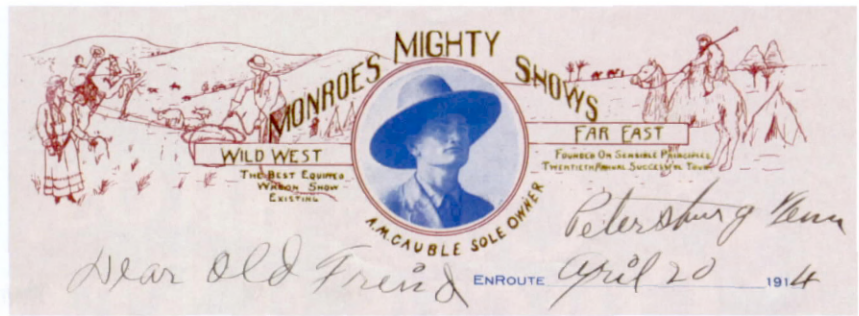 MONROES MIGHTY SHOWS
WILD WEST
THE BEST EQUIPPED
WAGON SHOW
EXISTING
FAR EAST
FOUNDED ON SENSIBLE PRINCIPLES
TWENTIETH ANNUAL SUCCESSFUL TOUR
A.M. CAUBLE SOLE OWNER
Petersburg Tenn
Dear Old Freind
ENROUTE April 20 1914